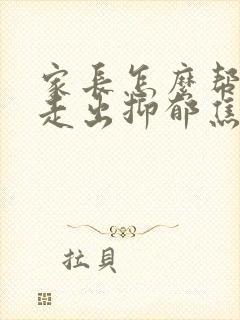 家長怎麼幫
走出抑郁焦
拉貝